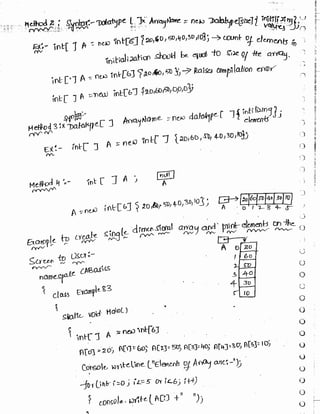 Method 2: Syntax:- Datatype [ ] ArrayName = new Datatype[size]{ initilizing
values };
Ex:- int[ ] A = new int[6] {20,60,50,40,30,10}; → count of elements in
initialization should be equal to size of the array.
int[ ] A = new int[6] {20,60,50}; → Raises compilation error
int[ ] A = new int[6] {20,60,50,0,0,0};
Method 3:- Syntax:- Datatype[ ] ArrayName = new datatype[ ] { intilizing
elements };
Ex:- int[ ] A = new int[ ] {20,60,50,40,30,10};
Method 4:- int [ ] A ; null
A
A = new int[6] { 20,60,50,40,30,10}; 20 60 50 40 30 10
A 0 1 2 3 4 5
Example to create single dimensional array and print elements on the
Screen to User:-
namespace CABasics
{ class Example83
{
static void Main( )
{ int[ ] A = new int[6]
A[0]=20; A[1]=60; A[2]=50; A[3]=40; A[4]=30; A[5]=10;
Console.WriteLine("Elements of Array are:-");
for(int i=0; i<=5 or i<6; i++)
{ console.write( A[i] + " ");
A 0 20
1 60
2 50
3 40
4 30
5 10